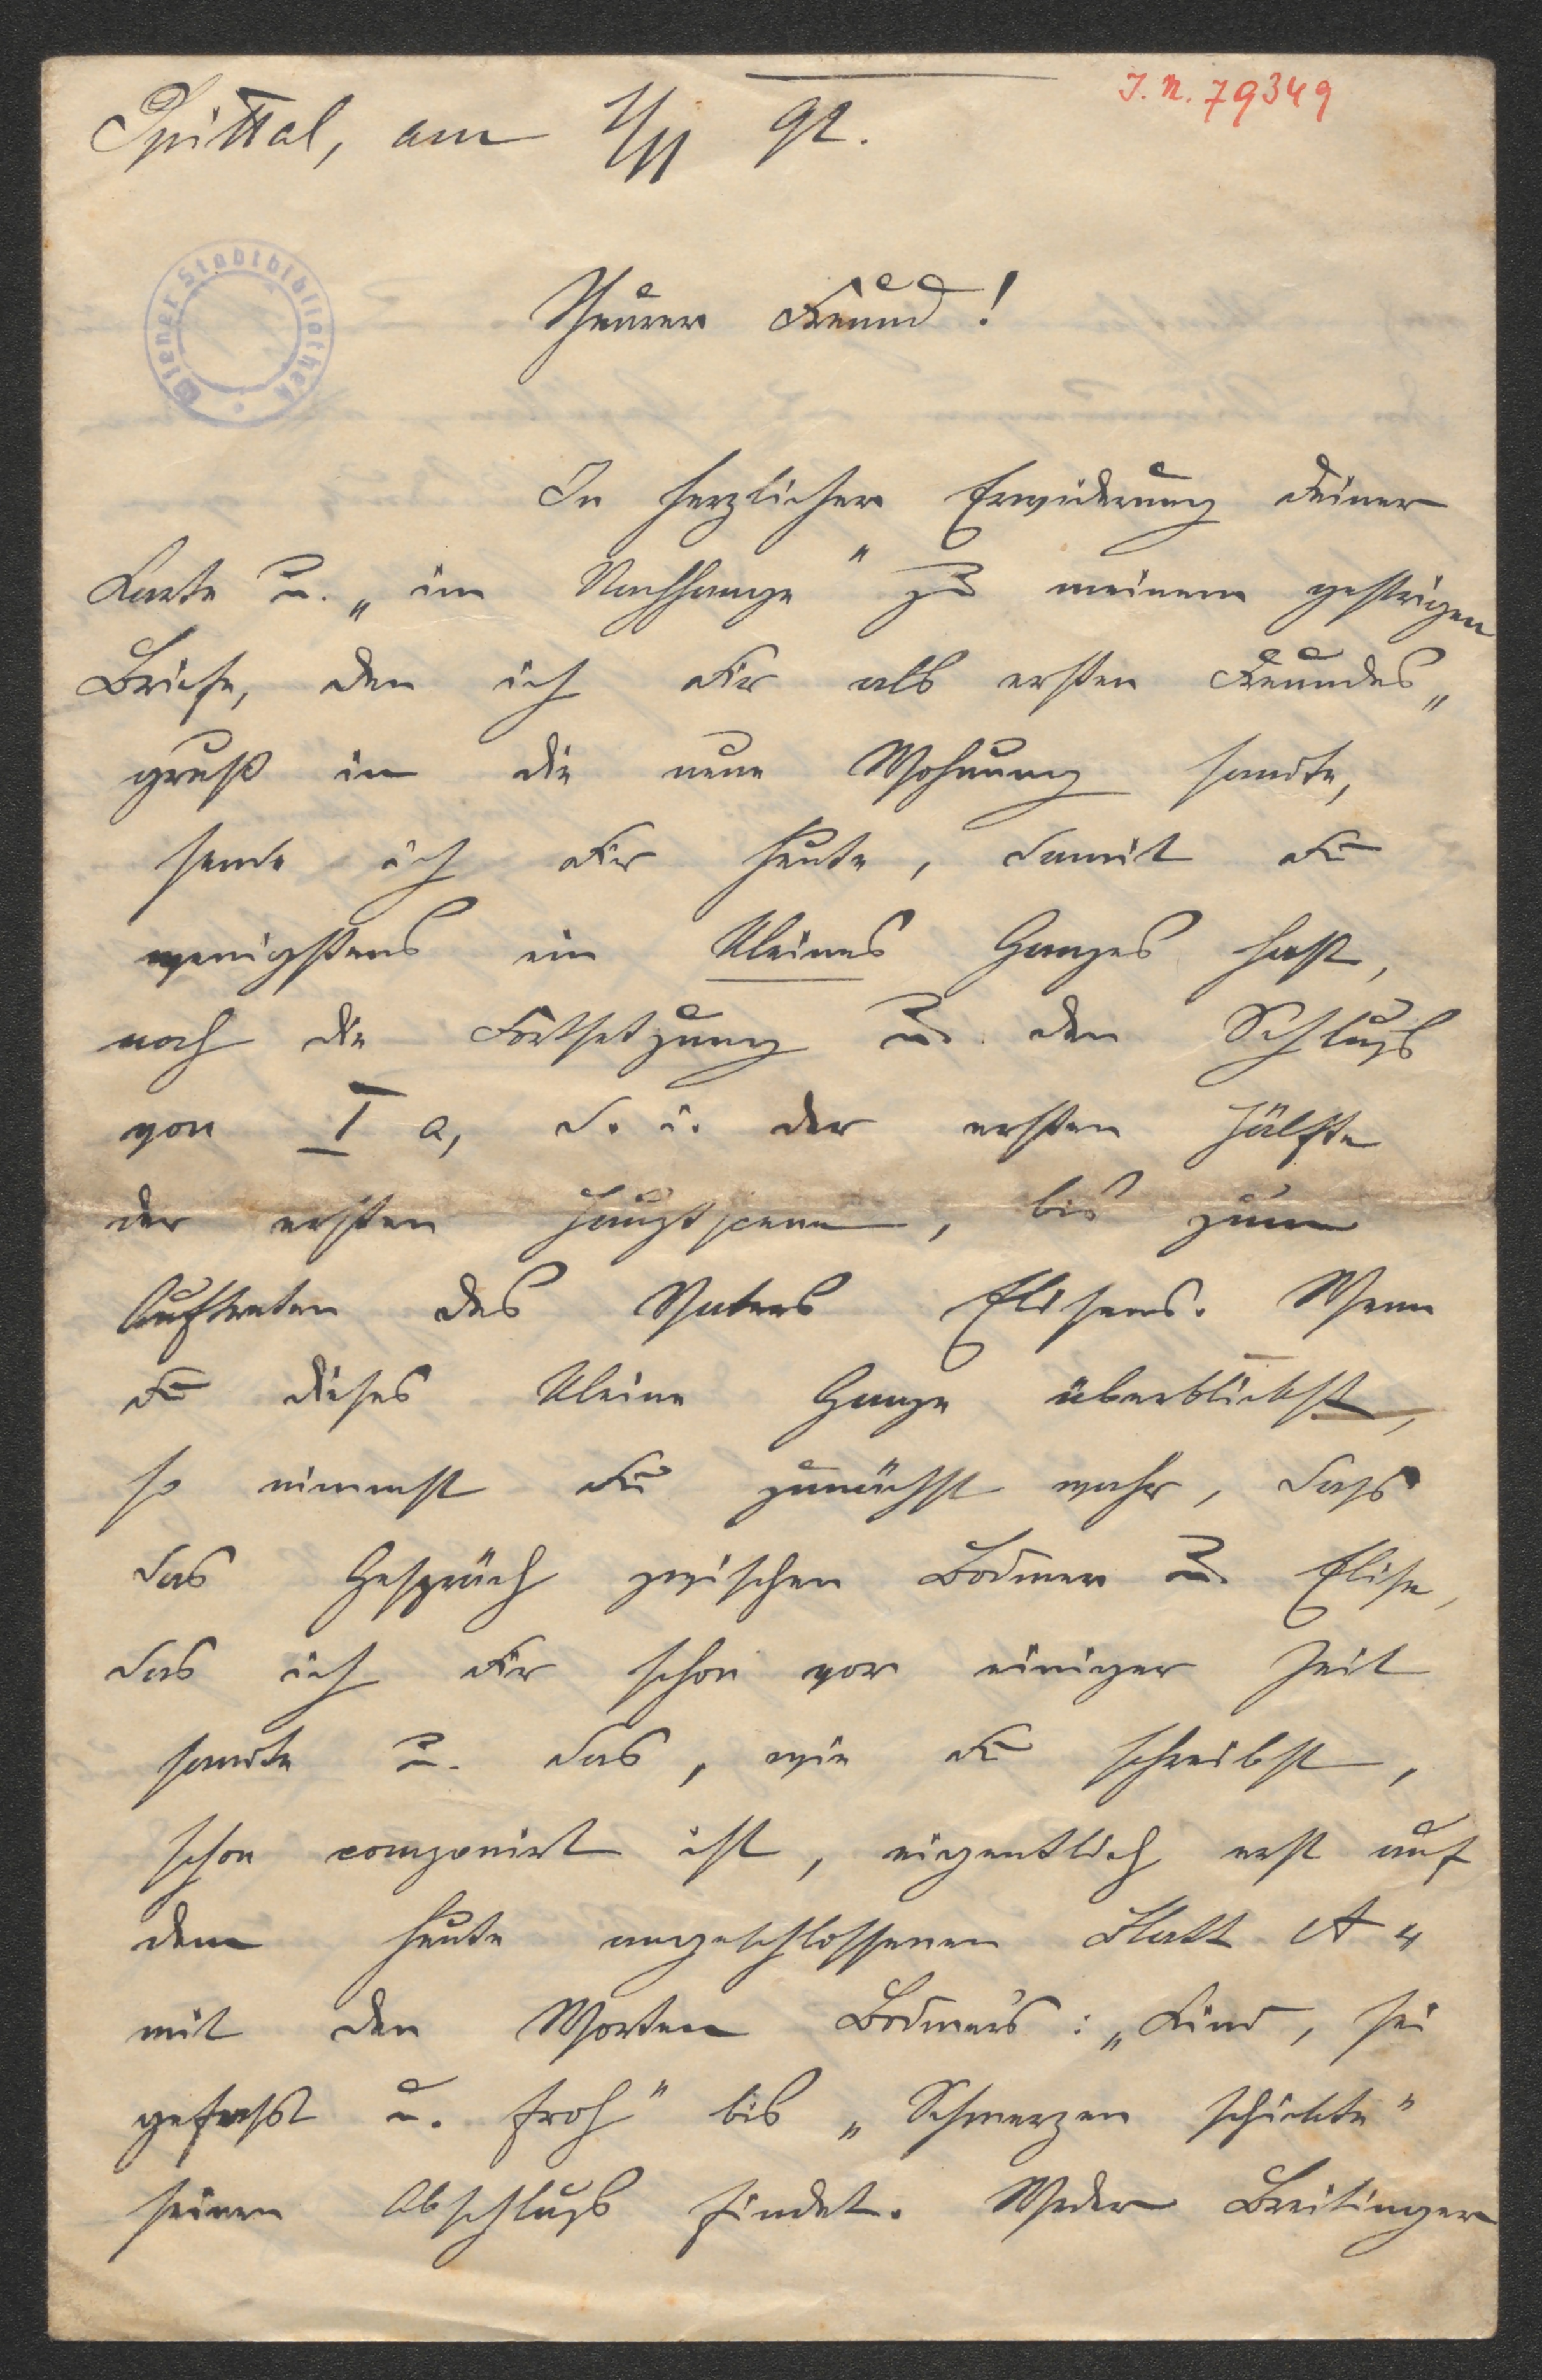 Spittal, am 1/11 92.
I. N. 79349
Wiener Stadtbibliothek
Theurer Freund!
In herzlicher Erwiderung Deiner
Karte u. „im Nachhange" zu meinem gestrigen
Briefe, den ich Dir als ersten Freundes„
gruß in die neue Wohnung sandte,
sende ich Dir heute, damit Du
wenigstens ein kleines Ganzes hast,
noch die Fortsetzung u. den Schluss
von I a, d. i. der ersten Hälfte
der ersten Hauptscene, bis zum
Auftreten des Vaters Elisens. Wenn
Du dieses kleine Ganze überblickst,
so nimmst Du zunächst wahr, dass
das Gespräch zwischen Bodmer u. Elise,
das ich Dir schon vor einiger Zeit
sandte u. das, wie Du schreibst,
schon componirt ist, eigentlich erst auf
dem heute angeschlossenen Blatt A 4
mit den Worten Bodmer's: „Kind, sei
gefasst u. froh" bis „Schmerzen schickte"
seinen Abschluss findet. Weder Breitinger